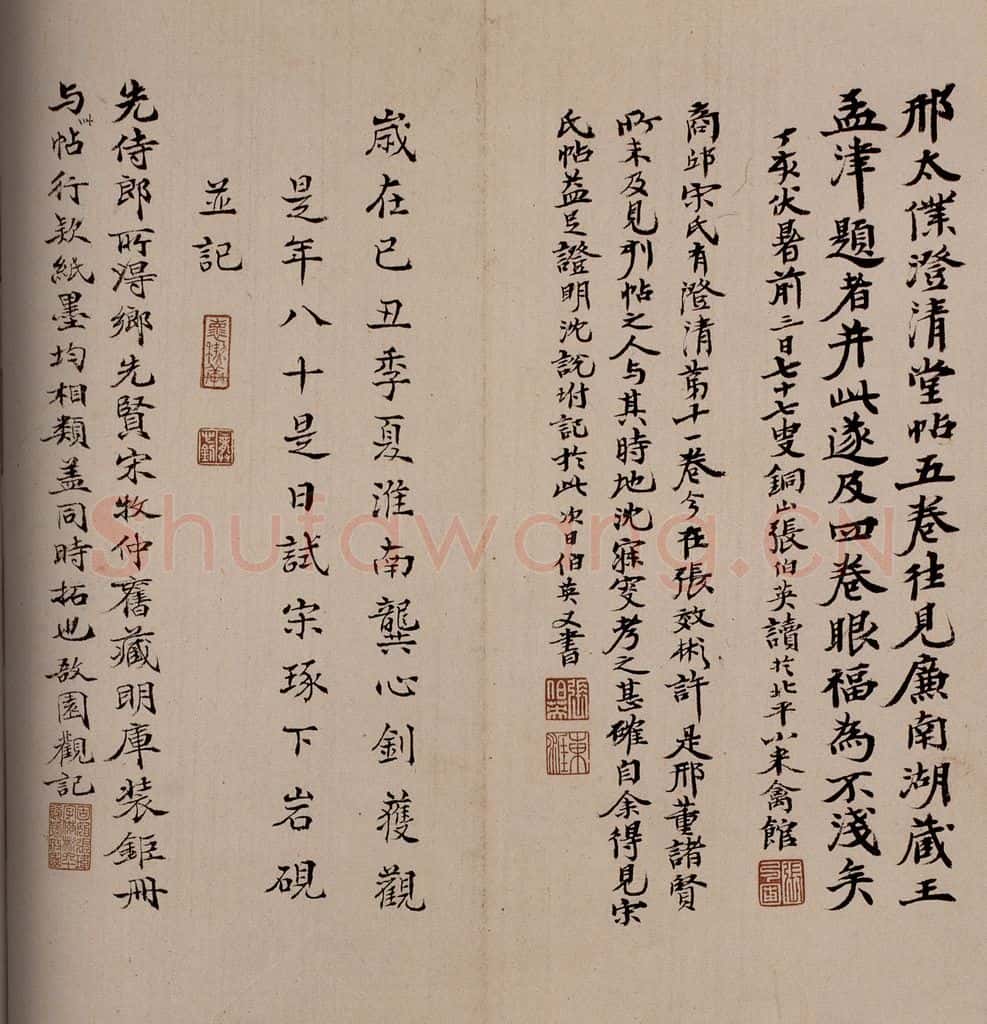 邢太僕澄清堂帖五卷往見廉南湖藏王
孟津題者并此遂及四卷眼福為不淺矣
丁亥伏暑前三日七十七叟銅山張伯英讀於北平小來禽館
商邱宋氏有澄清第十一卷今在張效彬許是邢董諸賢
所未及見刊帖之人与其時地沈寐叟考之甚確自余得見宋
氏帖益足證明沈說坿記於此次日伯英又書
歲在己丑季夏淮南龔心釗獲觀
是年八十是日試宋琢下岩硯
並記
先侍郎所得鄉先賢宋牧仲舊藏明庫裝鉅冊
与此帖行款紙墨均相類蓋同時拓也敔園觀記
Shufawang.CN